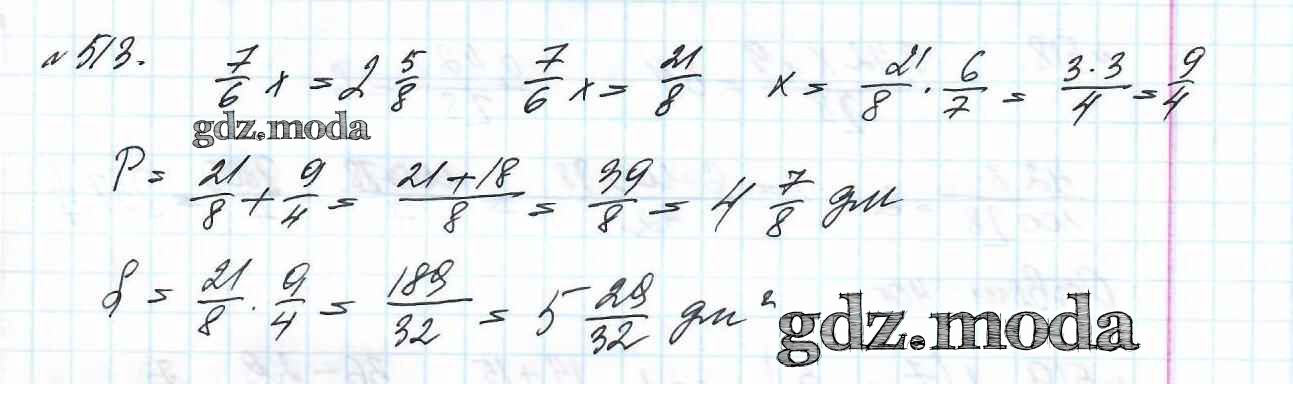 №513. 7/6 x = 2 5/8 7/6 x = 21/8 x = 21/8 · 6/7 = 3·3/4 = 9/4
gdz.moda
P = 21/8 + 9/4 = 21+18/8 = 39/8 = 4 7/8 дм
S = 21/8 · 9/4 = 189/32 = 5 29/32 дм²
gdz.moda